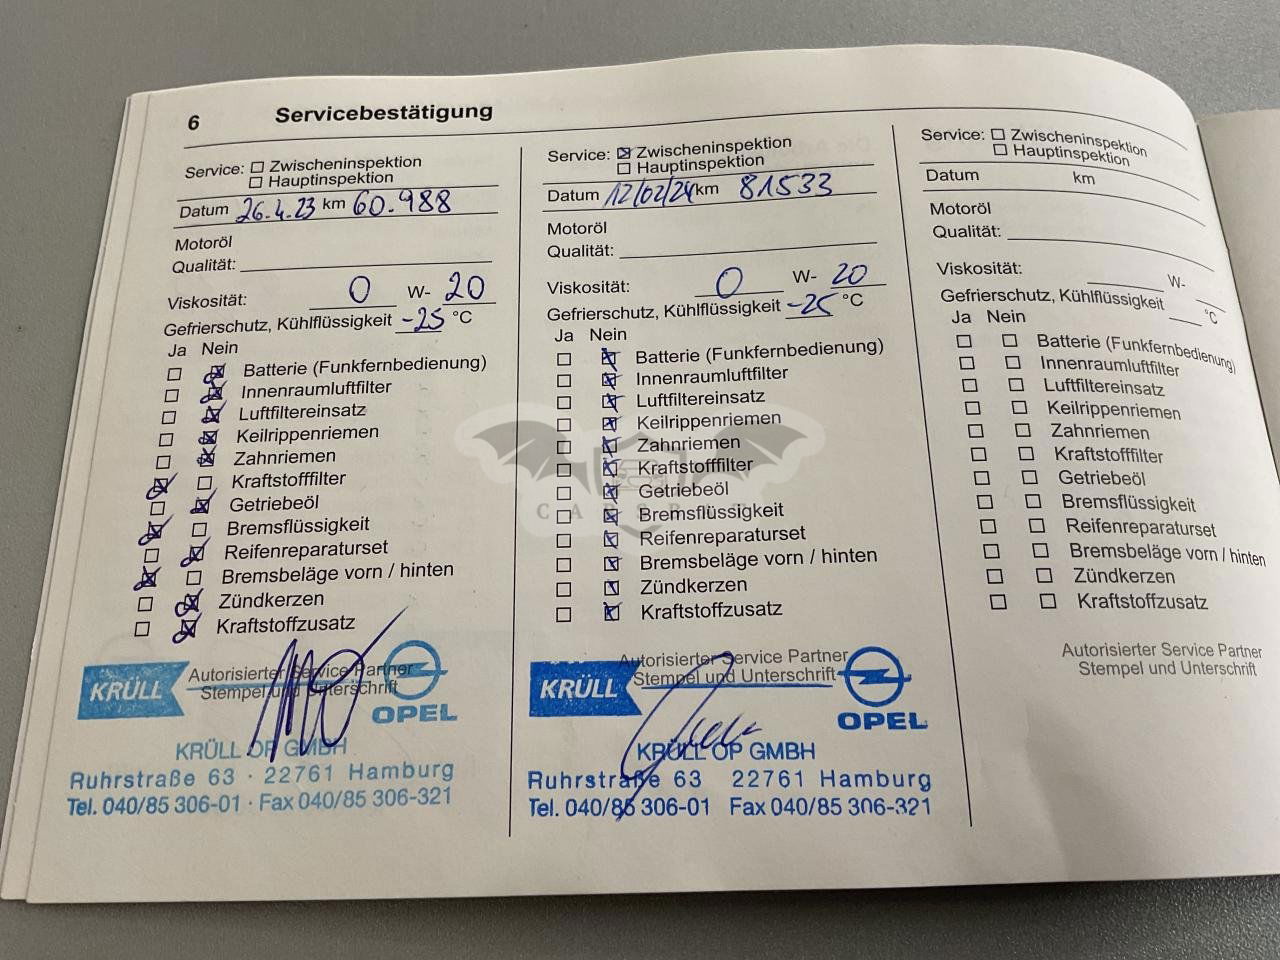 6 Servicebestätigung
Service: Zwischeninspektion
Hauptinspektion
Datum 26.4.23 km 60.988
Motoröl
Qualität:
Viskosität: 0 W- 20
Gefrierschutz, Kühlflüssigkeit -25 °C
Ja Nein
Batterie (Funkfernbedienung)
Innenraumluftfilter
Luftfiltereinsatz
Keilrippenriemen
Zahnriemen
Kraftstofffilter
Getriebeöl
Bremsflüssigkeit
Reifenreparaturset
Bremsbeläge vorn / hinten
Zündkerzen
Kraftstoffzusatz
Autorisierter Service Partner
Stempel und Unterschrift
KRÜLL
OPEL
KRÜLL OP GMBH
Ruhrstraße 63 · 22761 Hamburg
Tel. 040/85 306-01 · Fax 040/85 306-321
Service: Zwischeninspektion
Hauptinspektion
Datum 12/02/24 km 81533
Motoröl
Qualität:
Viskosität: 0 W- 20
Gefrierschutz, Kühlflüssigkeit -25 °C
Ja Nein
Batterie (Funkfernbedienung)
Innenraumluftfilter
Luftfiltereinsatz
Keilrippenriemen
Zahnriemen
Kraftstofffilter
Getriebeöl
Bremsflüssigkeit
Reifenreparaturset
Bremsbeläge vorn / hinten
Zündkerzen
Kraftstoffzusatz
Autorisierter Service Partner
Stempel und Unterschrift
KRÜLL
OPEL
KRÜLL OP GMBH
Ruhrstraße 63 22761 Hamburg
Tel. 040/85 306-01 Fax 040/85 306-321
Service: Zwischeninspektion
Hauptinspektion
Datum km
Motoröl
Qualität:
Viskosität: W-
Gefrierschutz, Kühlflüssigkeit °C
Ja Nein
Batterie (Funkfernbedienung)
Innenraumluftfilter
Luftfiltereinsatz
Keilrippenriemen
Zahnriemen
Kraftstofffilter
Getriebeöl
Bremsflüssigkeit
Reifenreparaturset
Bremsbeläge vorn / hinten
Zündkerzen
Kraftstoffzusatz
Autorisierter Service Partner
Stempel und Unterschrift